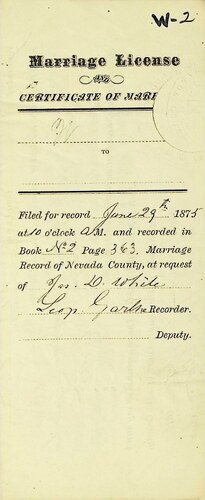 W-2
Marriage License
AND
CERTIFICATE OF MARR
TO
Filed for record June 29th 1875
at 10 o'clock A.M. and recorded in
Book No 2 Page 363. Marriage
Record of Nevada County, at request
of Jas. D. White
Leop Garthe Recorder.
Deputy.